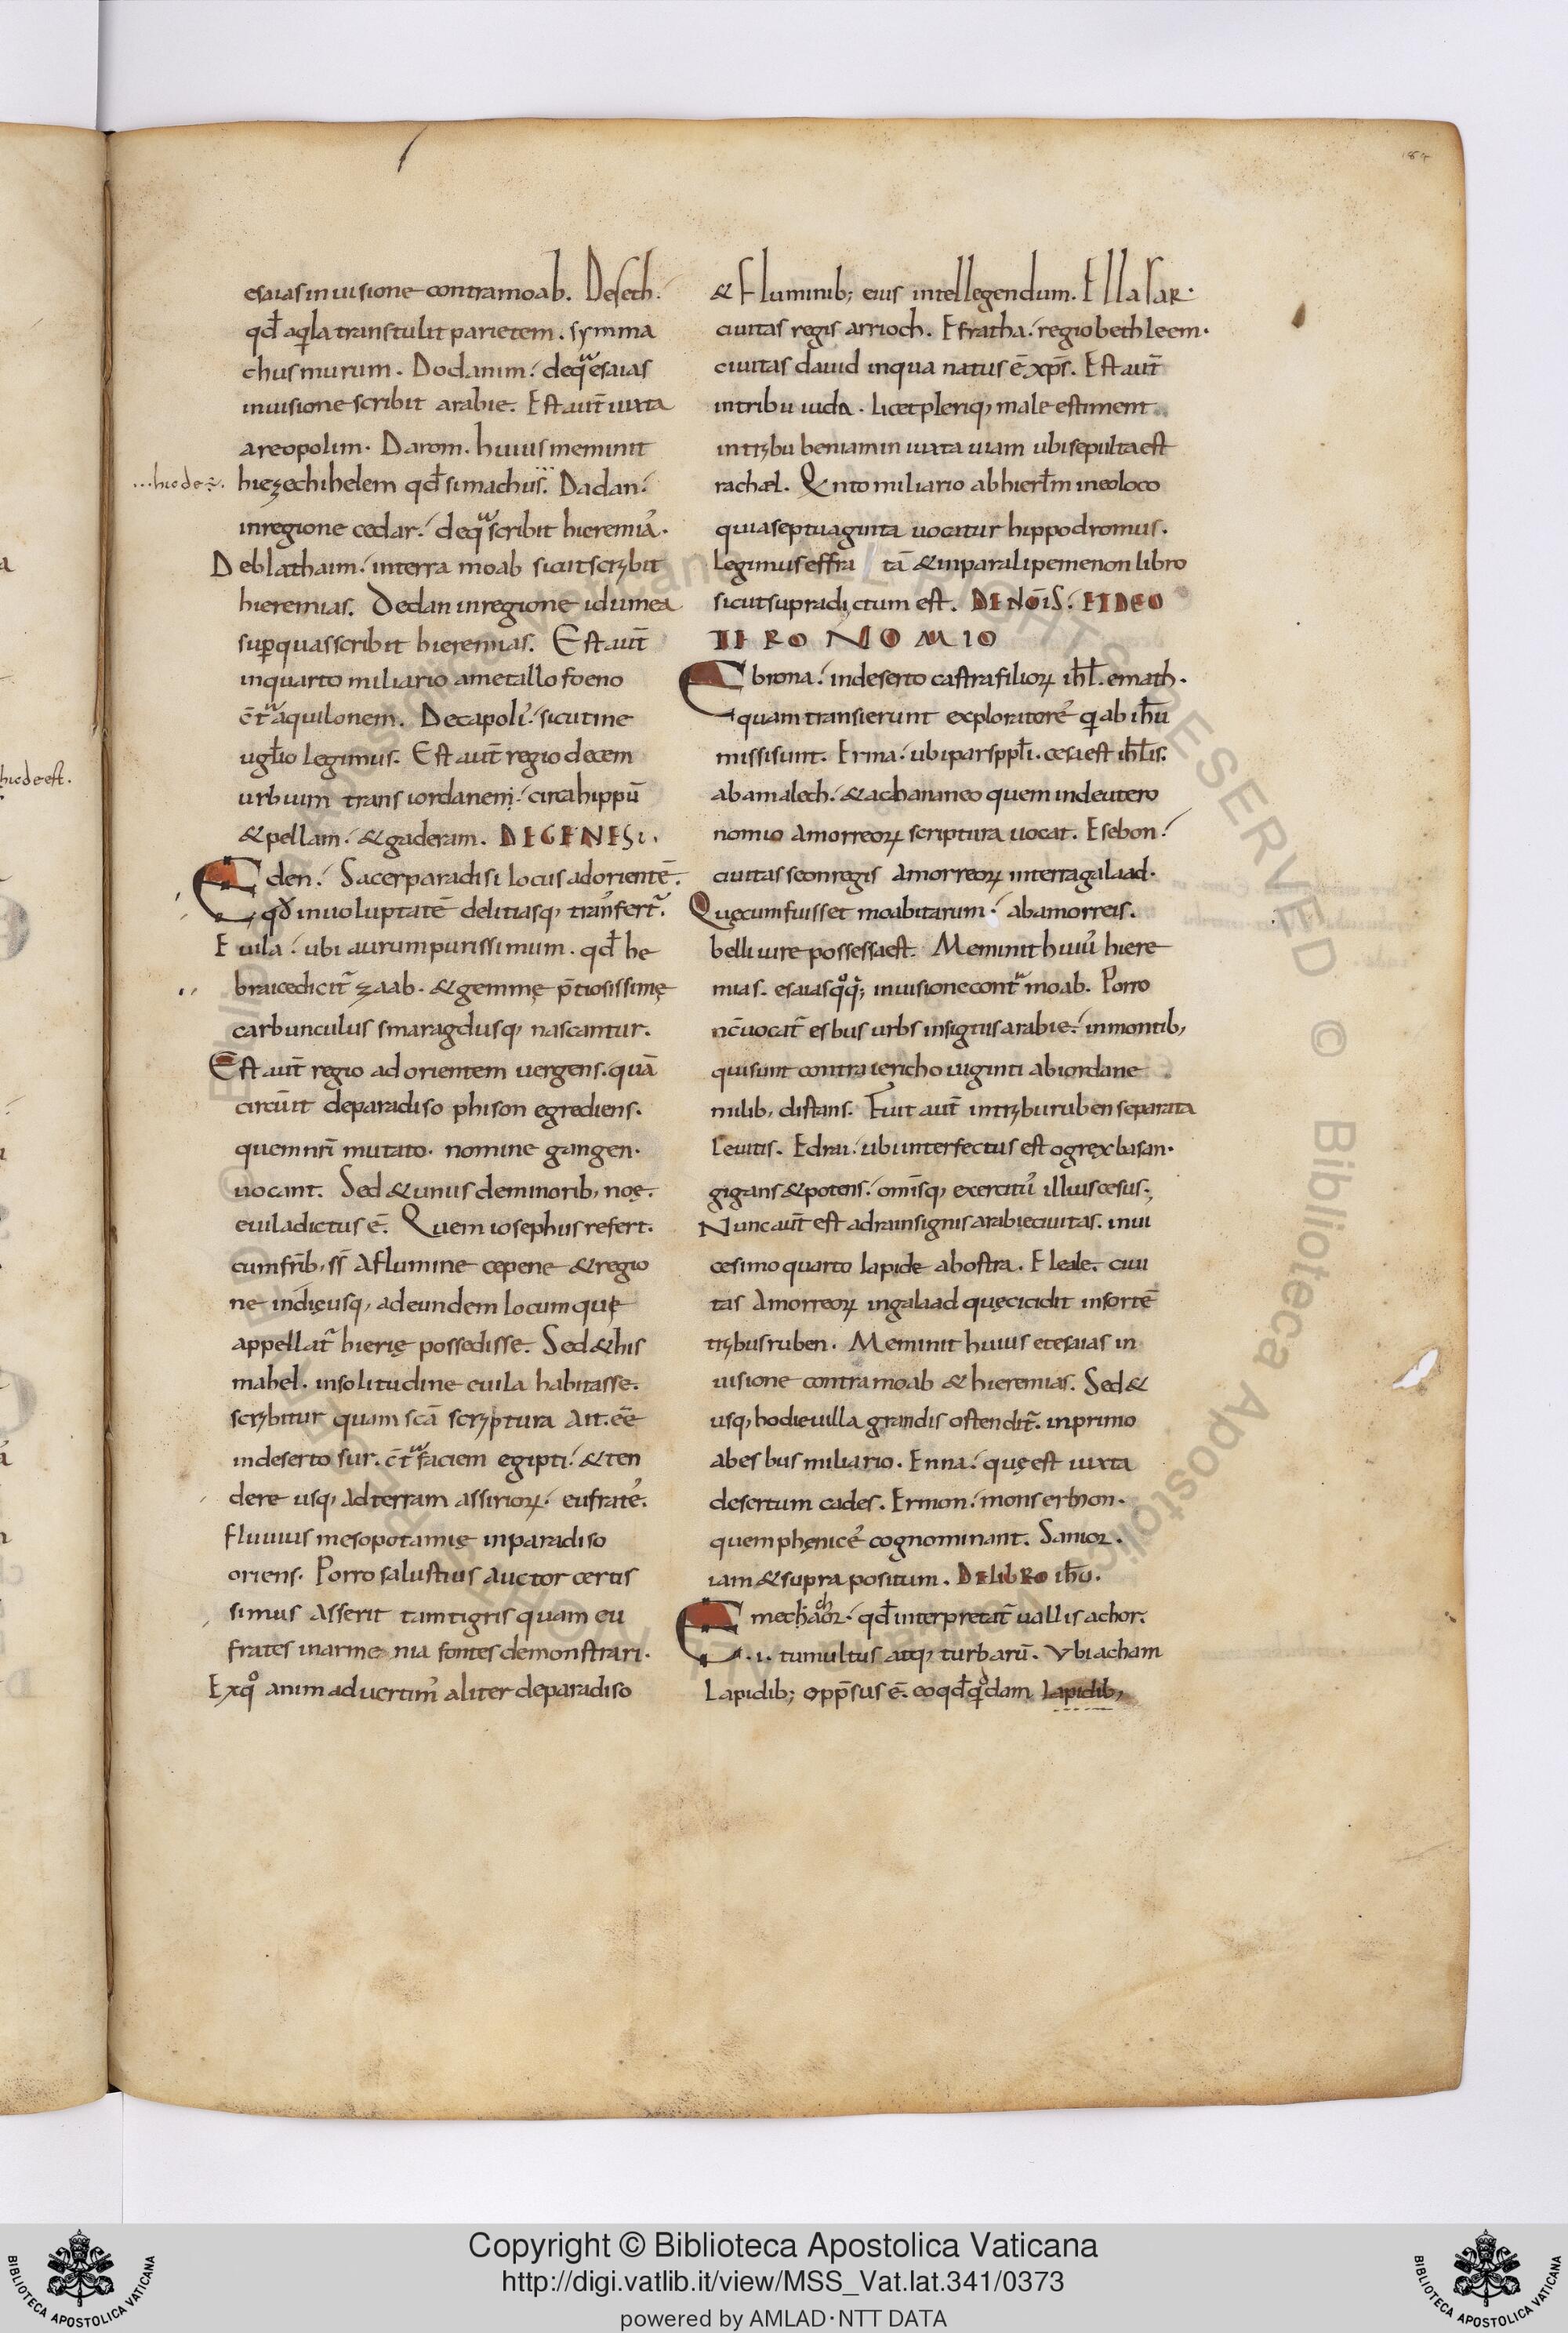 184
esaias in uisione contra moab. Deseth.
qđ aqła transtulit parietem. symma
chus murum. Dodanim. deqͣ esaias
inuisione scribit arabie. Est aut̄ iuxta
areopolim. Darom. huius meminit
...hic de÷. hiezechihelem qđ simachus. Dadan.
inregione cedar. deqͣ scribit hieremiaʼ.
Deblathaim. interra moab sicut scrybit
hieremias. Dedan inregione idumea
sup̱ quas scribit hieremias. Est aut̄
inquarto miliario ametallo foeno
c̄tͣ aquilonem. Decapoliʼ. sicut ine
ugło legimus. Est aut̄ regio decem
urbium trans iordanem. circa hippū
& pellam. & gaderam. DEGENESI.
Eden. Sacer paradisi locus adorientē.
qđ inuoluptatē delitiasq, tranʼfert̄.
Euila. ubi aurum purissimum. qđ he
braice dicit̄ zaab. & gemmę p̄tiosissimę
carbunculus smaragdusq, nascantur.
Est aut̄ regio ad orientem uergens. quā
circūit deparadiso phison egrediens.
quem nr̄i mutato. nomine gangen.
uocant. Sed & unus deminorib, noę.
euila dictus ē. Quem iosephus refert.
cum fr̄ib, sr̄ A flumine cepene & regio
ne indię usq, ad eundem locum quę
appellat̄ hierię possedisse. Sed & his
mahel. insolitudine euila habitasse.
scrybitur quam scā scryptura Ait. ēē
indeserto sur. c̄tͣ faciem egipti. & ten
dere usq, ad terram assirioꝝ. eufrateʼ.
fluuius mesopotamię inparadiso
oriens. Porro salustius auctor certis
simus Asserit tam tigris quam eu
frates inarme nia fontes demonstrari.
Exqͦ animaduertimʼ aliter deparadiso
& Fluminib; eius intellegendum. Ellasar.
ciuitas regis arrioch. Efratha. regio bethleem.
ciuitas dauid inqua natus ē xp̄s. Est aut̄
intribu iuda. licet pleriq, male estiment
intrybu beniamin iuxta uiam ubi sepulta est
rachel. Qnto miliario ab hierłm in eo loco
quiaseptuaginta uocatur hippodromus.
legimus effra tā & inparalipemenon libro
sicut supradictum est. DENOĪS. ETDEO
TERONOMIO
Ebrona. indeserto castra filioꝝ ihł. emath.
quam transierunt exploratoreʼ q ab ihū
missi sunt. Erma. ubi pars ppłi. cesa est ihłis.
abamalech. & achananeo quem indeutero
nomio Amorreoꝝ scriptura uocat. Esebon.
ciuitas seon regis Amorreoꝝ interra galaad.
Quęcum fuisset moabitarum. abamorreis.
belli iure possessa est. Meminit huiuʼ hiere
mias. esaias qͦq; inuisione contͣ moab. Porro
nc̄ uocat̄ esbus urbs insignis arabie. inmontib,
qui sunt contra iericho uiginti abiordane
milib, distans. Fuit aut̄ intrybu ruben separata
leuitis. Edrai. ubi interfectus est og rex basan.
gigans & potens. omīsq, exercituʼ illius cesus.
Nunc aut̄ est adra insignis arabię ciuitas. inui
cesimo quarto lapide abostra. Eleale. ciui
tas Amorreoꝝ ingalaad quę cicidit insortē
trybus ruben. Meminit huius etesaias in
uisione contra moab & hieremias. Sed &
usq, hodie uilla grandis ostendit̄. inprimo
abesbus miliario. Enna. quę est iuxta
desertum cades. Ermon. mons ermon.
quem phęniceʼ cognominant. Sanior.
iam & supra positum. DELIBRO ihū.
Emechachor. qđ interpretat̄ uallis achor.
.i. tumultus atq, turbarū. Vbi acham
Lapidib; opp̄sus ē. eo qđ qͦdam lapidib,
Copyright © Biblioteca Apostolica Vaticana
http://digi.vatlib.it/view/MSS_Vat.lat.341/0373
powered by AMLAD·NTT DATA